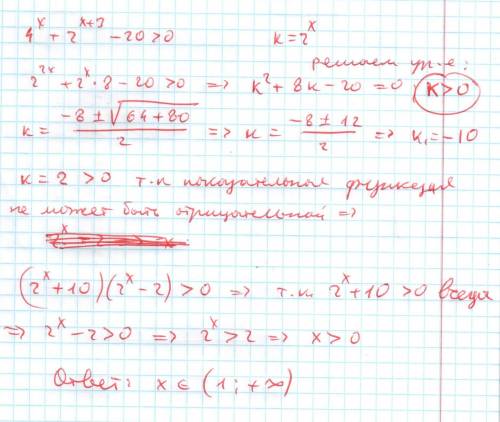 4^x + 2^{x+3} - 20 > 0    k = 2^x
решаем ур-е:
2^{2x} + 2^x · 8 - 20 > 0 => k² + 8k - 20 = 0; k > 0
k = (-8 ± √(64 + 80))/2 => k = (-8 ± 12)/2 => k₁ = -10
k = 2 > 0 т.к показательная функция
не может быть отрицательной =>
(2^x + 10)(2^x - 2) > 0 => т.к. 2^x + 10 > 0 всегда
=> 2^x - 2 > 0 => 2^x > 2 => x > 0
Ответ: x ∈ (1; +∞)